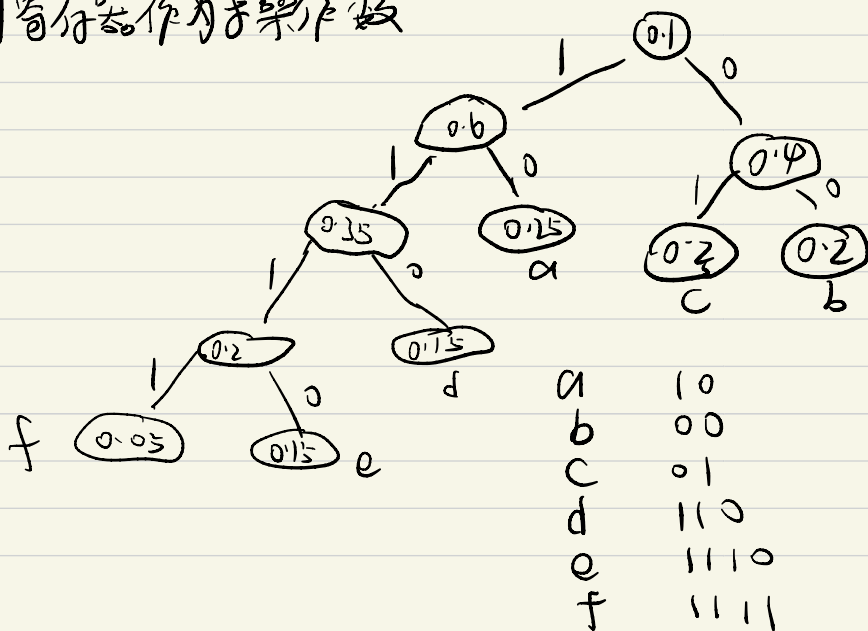 寄存器作为于操作数
0.1
1 0
0.6 0.4
1 0 1 0
0.35 0.25 0.2 0.2
a c b
1 0
0.2 0.15
d
1 0
f 0.05 0.15 e
a 10
b 00
c 01
d 110
e 1110
f 1111